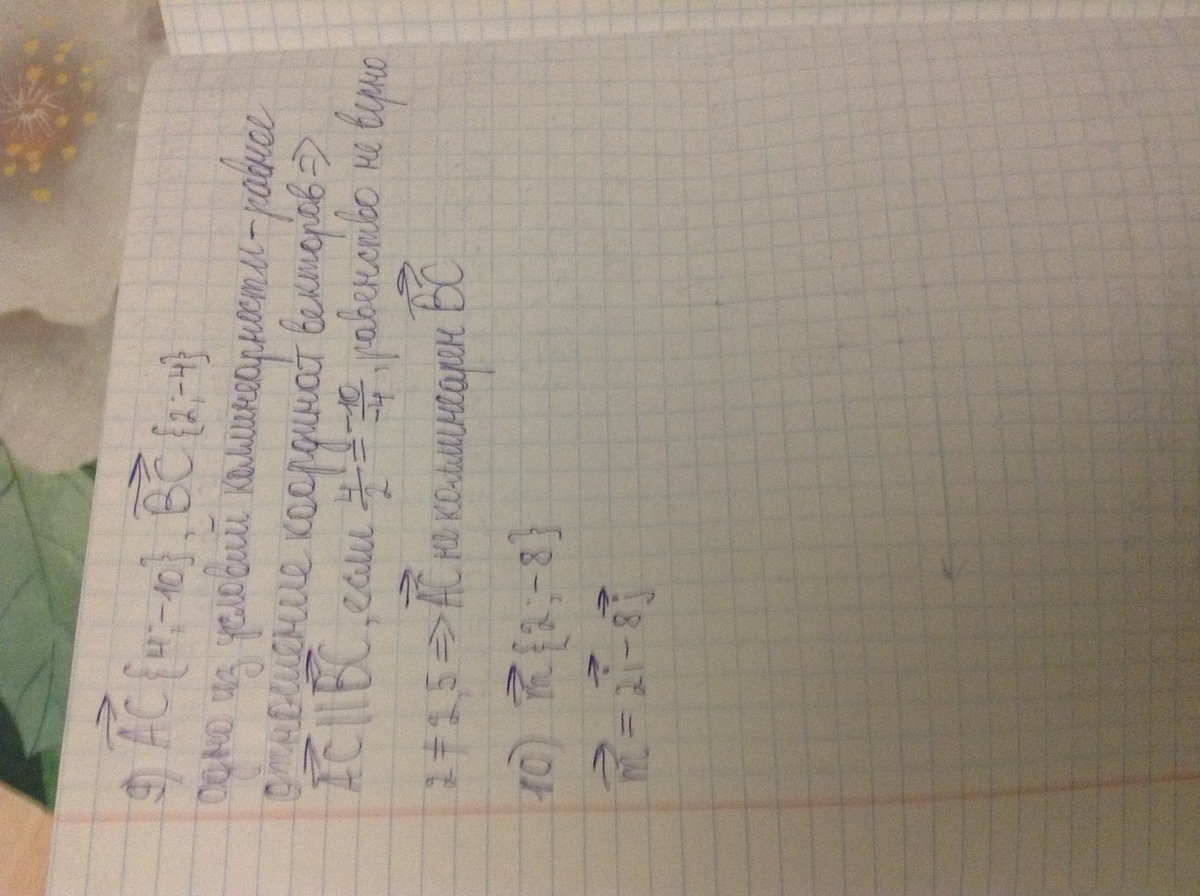 9) AC⃗ {4; -10}, BC⃗ {2; -4}
одно из условий коллинеарности - равное
отношение координат векторов =>
AC⃗ || BC⃗, если 4/2 = -10/-4, равенство не верно
2 ≠ 2,5 => AC⃗ не коллинеарен BC⃗
10) m⃗ {2; -8}
m⃗ = 2i⃗ - 8j⃗